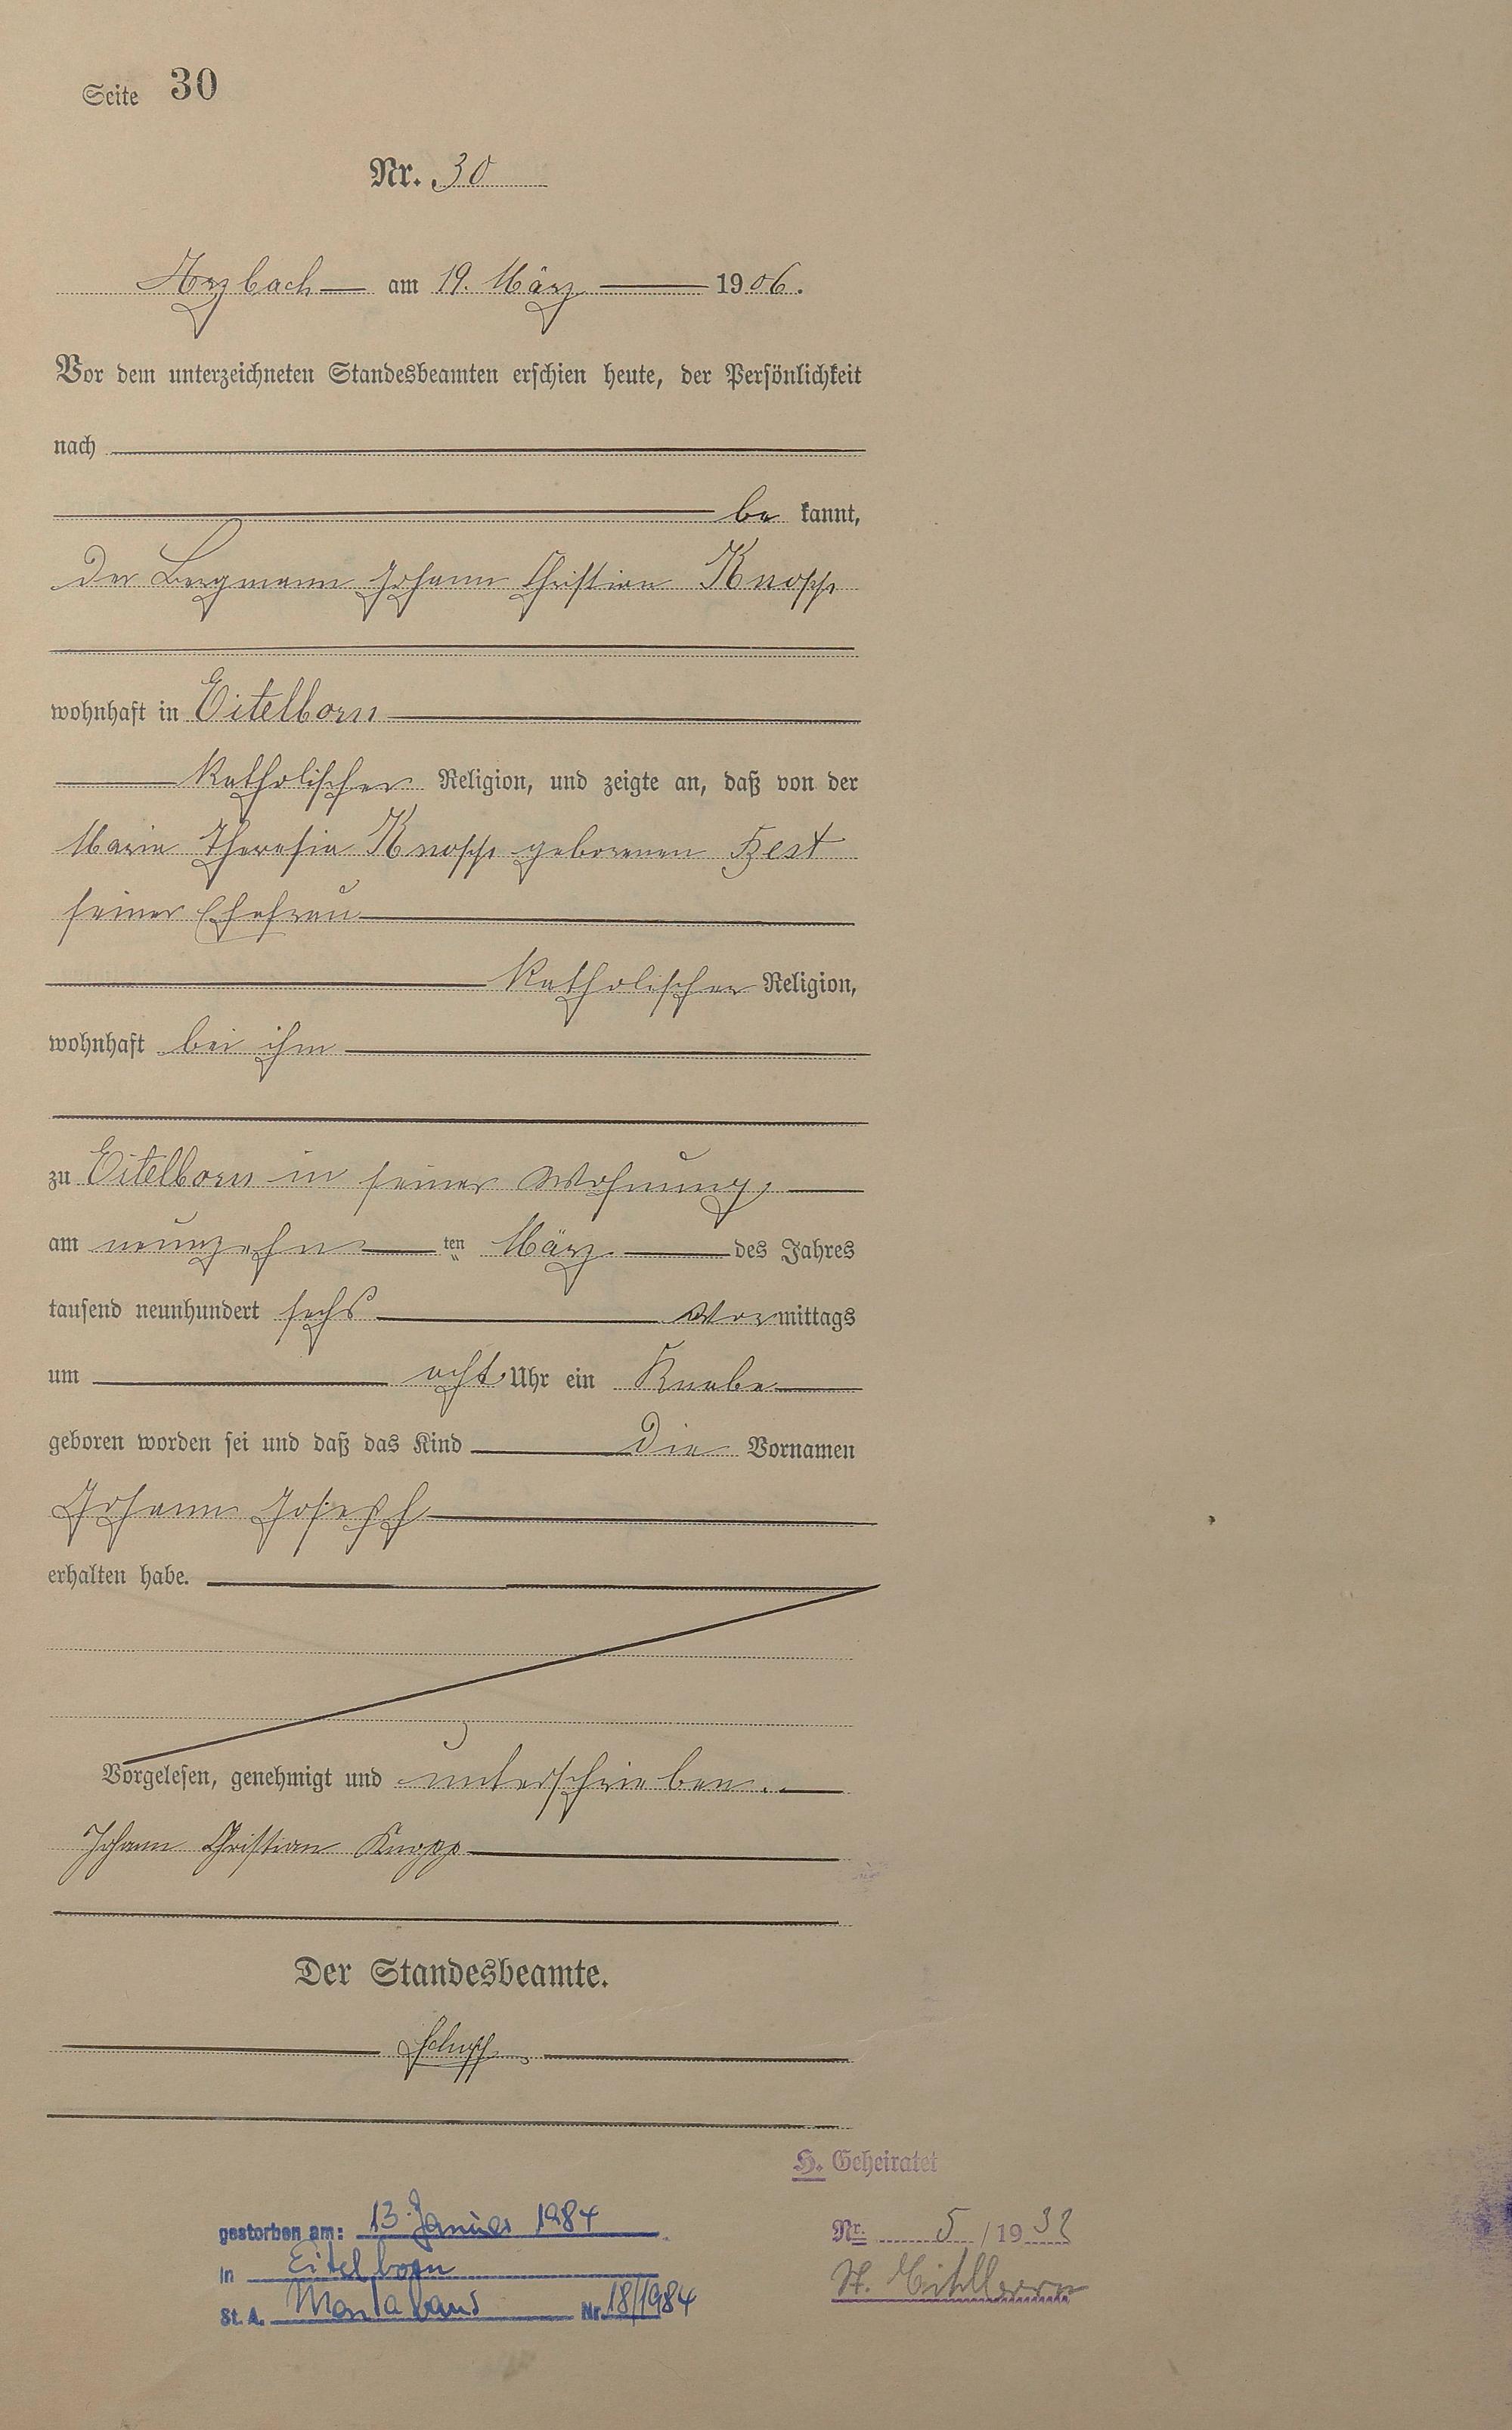 Seite 30
Nr. 30
Arzbach am 19. März 1906.
Vor dem unterzeichneten Standesbeamten erschien heute, der Persönlichkeit
nach
be kannt,
der Bergmann Johann Christian Knopp
wohnhaft in Eitelborn
katholischer Religion, und zeigte an, daß von der
Marie Theresia Knopp geborenen Best
seiner Ehefrau
katholischer Religion,
wohnhaft bei ihm
zu Eitelborn in seiner Wohnung,
am neunzehn ten März des Jahres
tausend neunhundert sechs Vormittags
um acht Uhr ein Knabe
geboren worden sei und daß das Kind die Vornamen
Johann Joseph
erhalten habe.
Vorgelesen, genehmigt und unterschrieben.
Johann Christian Knopp
Der Standesbeamte.
H. Geheiratet
gestorben am: 13. Januar 1984
Nr. 5 / 19 32
in Eitelborn
St. A. Montabaur Nr. 18/1984